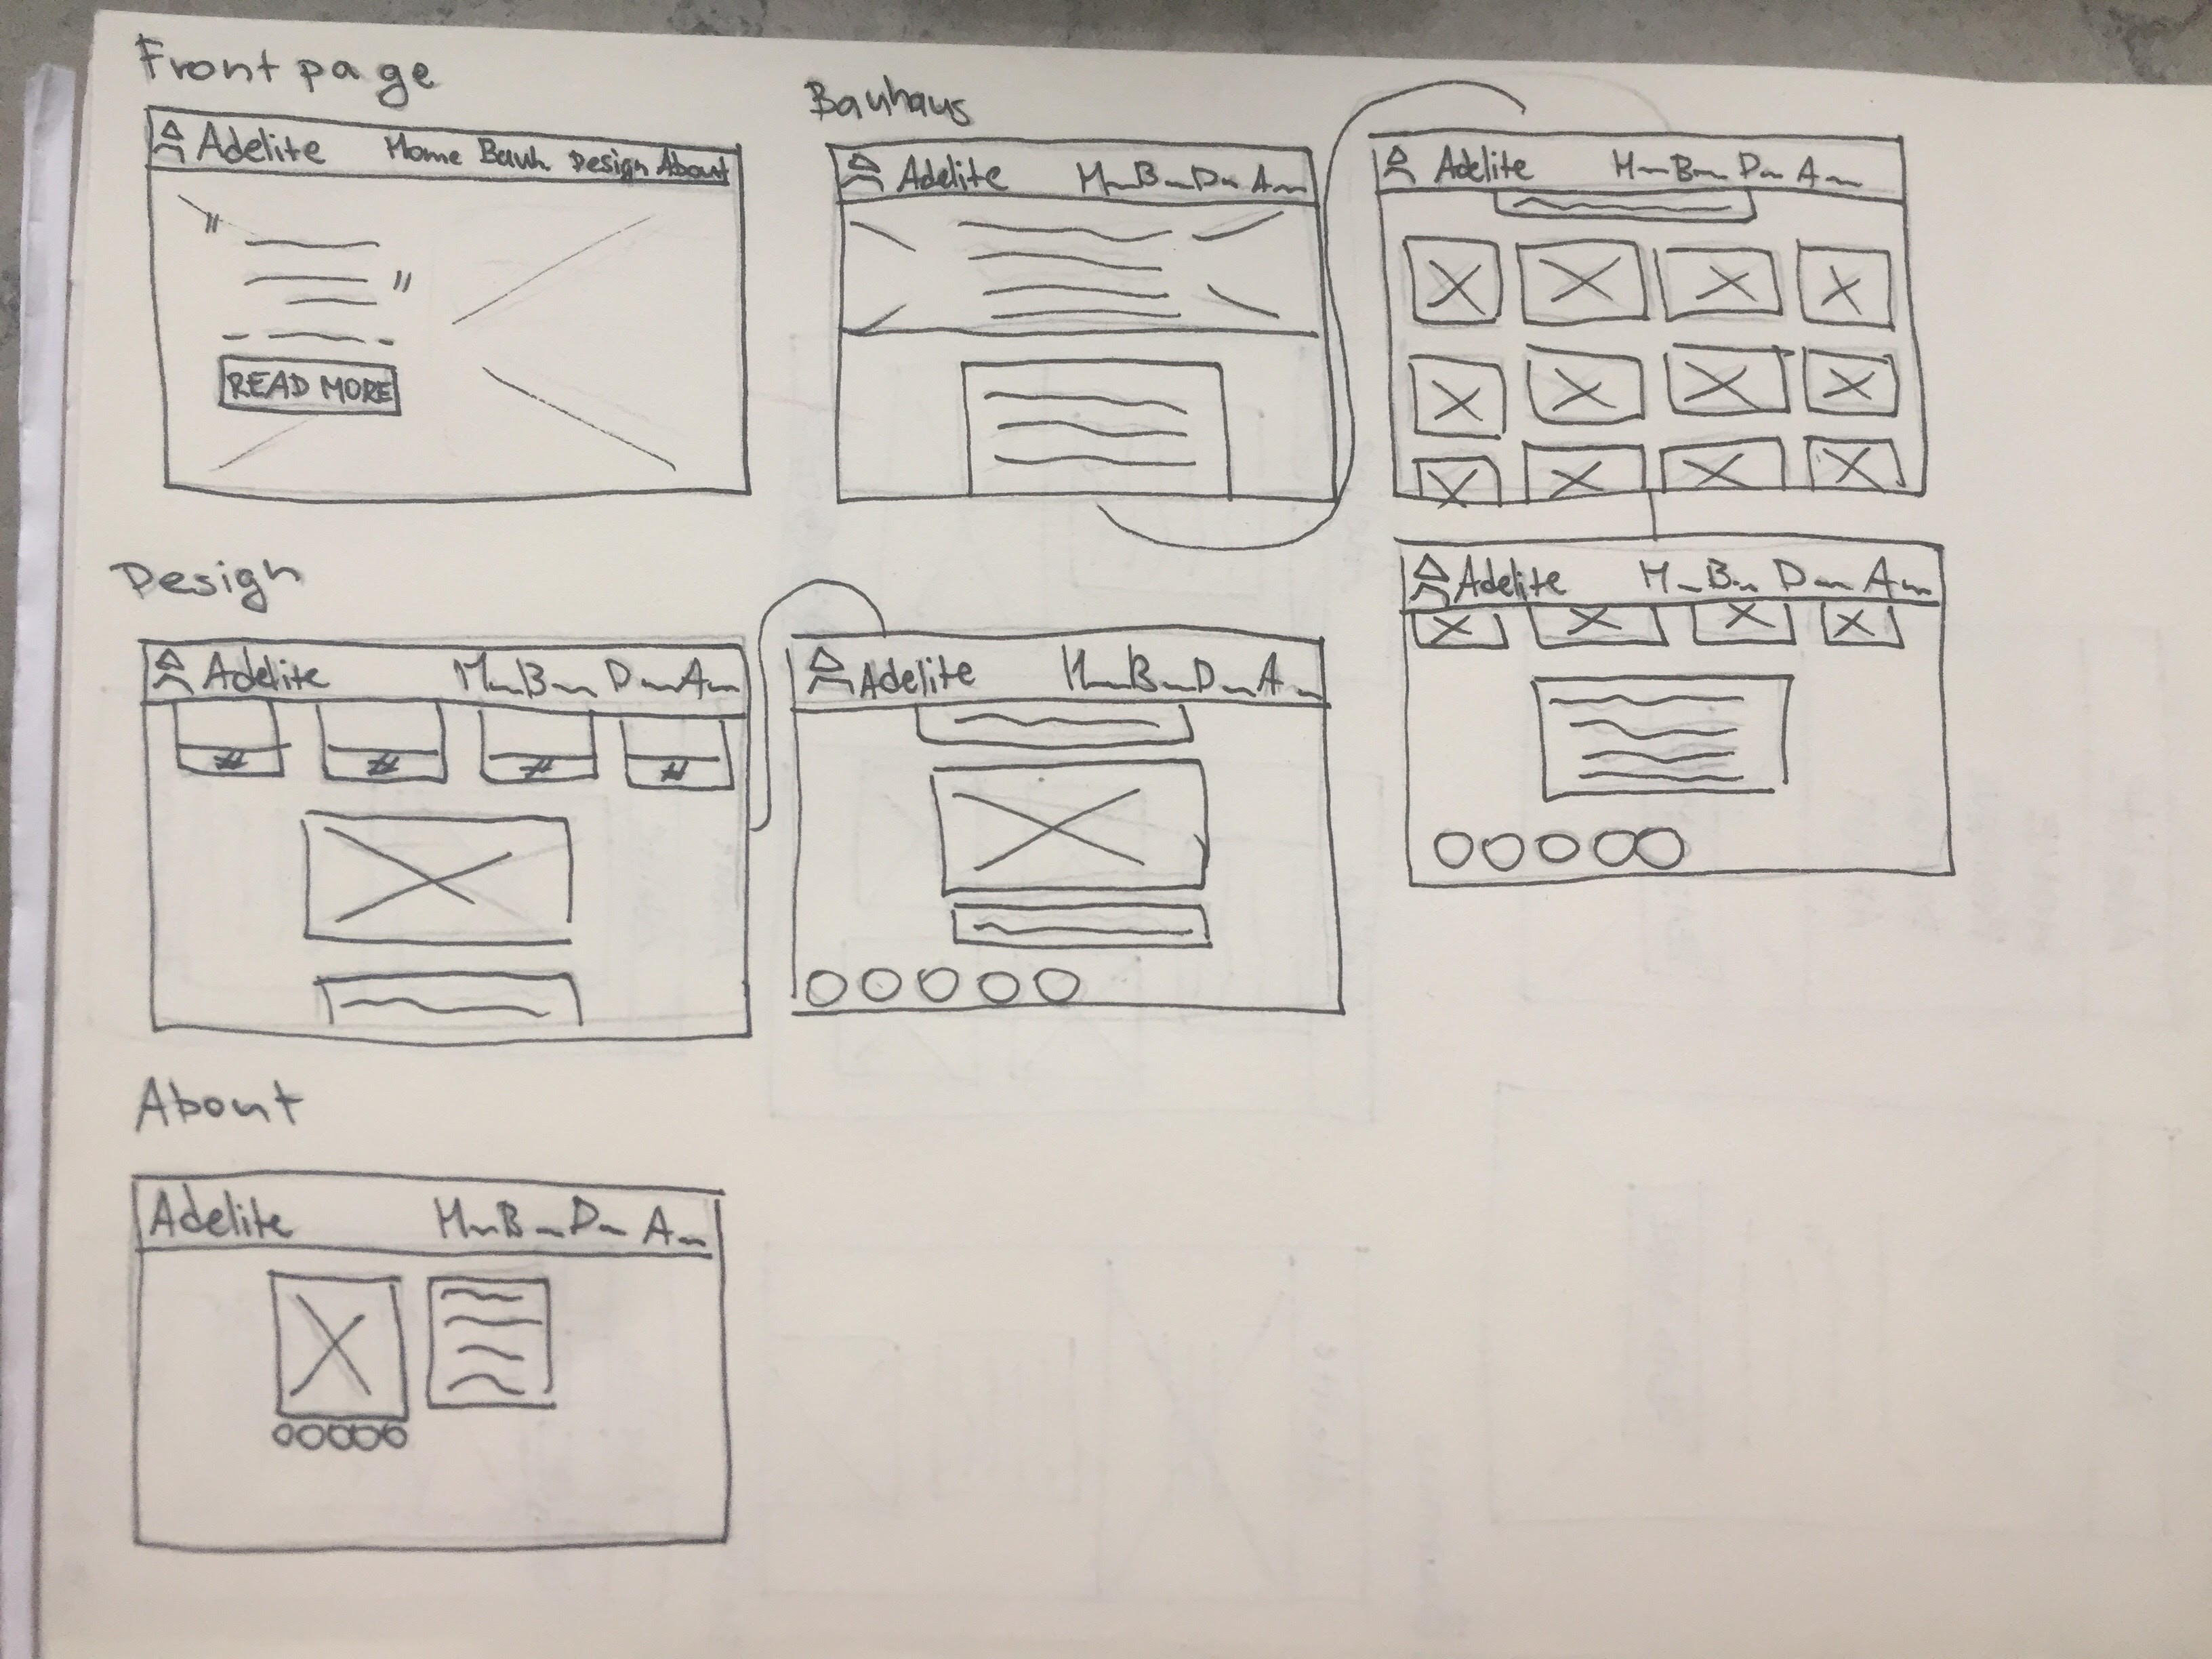 Front page
Adelite Home Bauh Design About
" "
READ MORE
Bauhaus
Adelite H B D A
Adelite H B D A
Adelite H B D A
Design
Adelite H B D A
# # # #
Adelite H B D A
About
Adelite H B D A